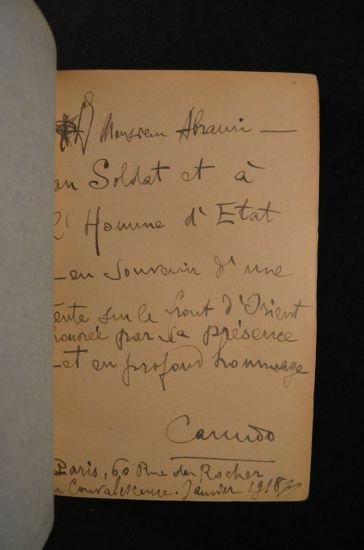 Monsieur Abrami —
au Soldat et à
l'Homme d'Etat
— en souvenir d'une
tente sur le front d'Orient
honorée par sa présence
— et en profond hommage
Canudo
Paris, 60 Rue du Rocher
Convalescence. Janvier 1918